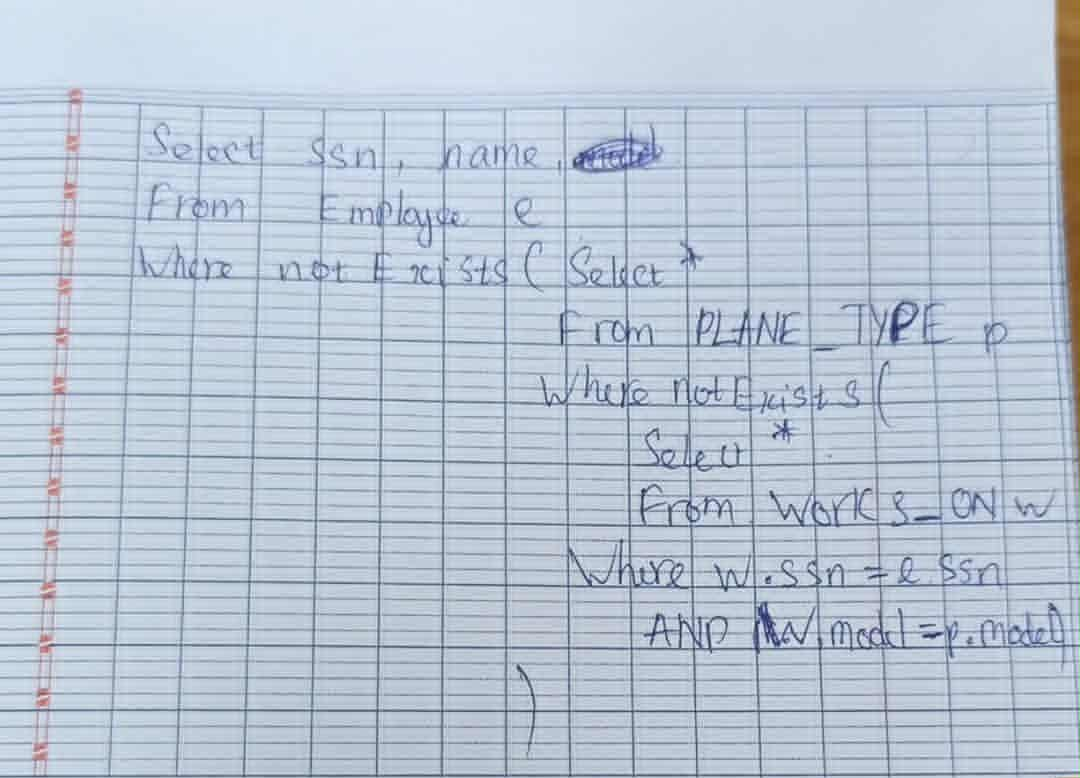 Select ssn, name,
From Employee e
Where not Exists ( Select *
From PLANE_TYPE p
Where not Exists (
Select *
From Works_ON w
Where w.ssn = e.ssn
AND W.model = p.model)
)